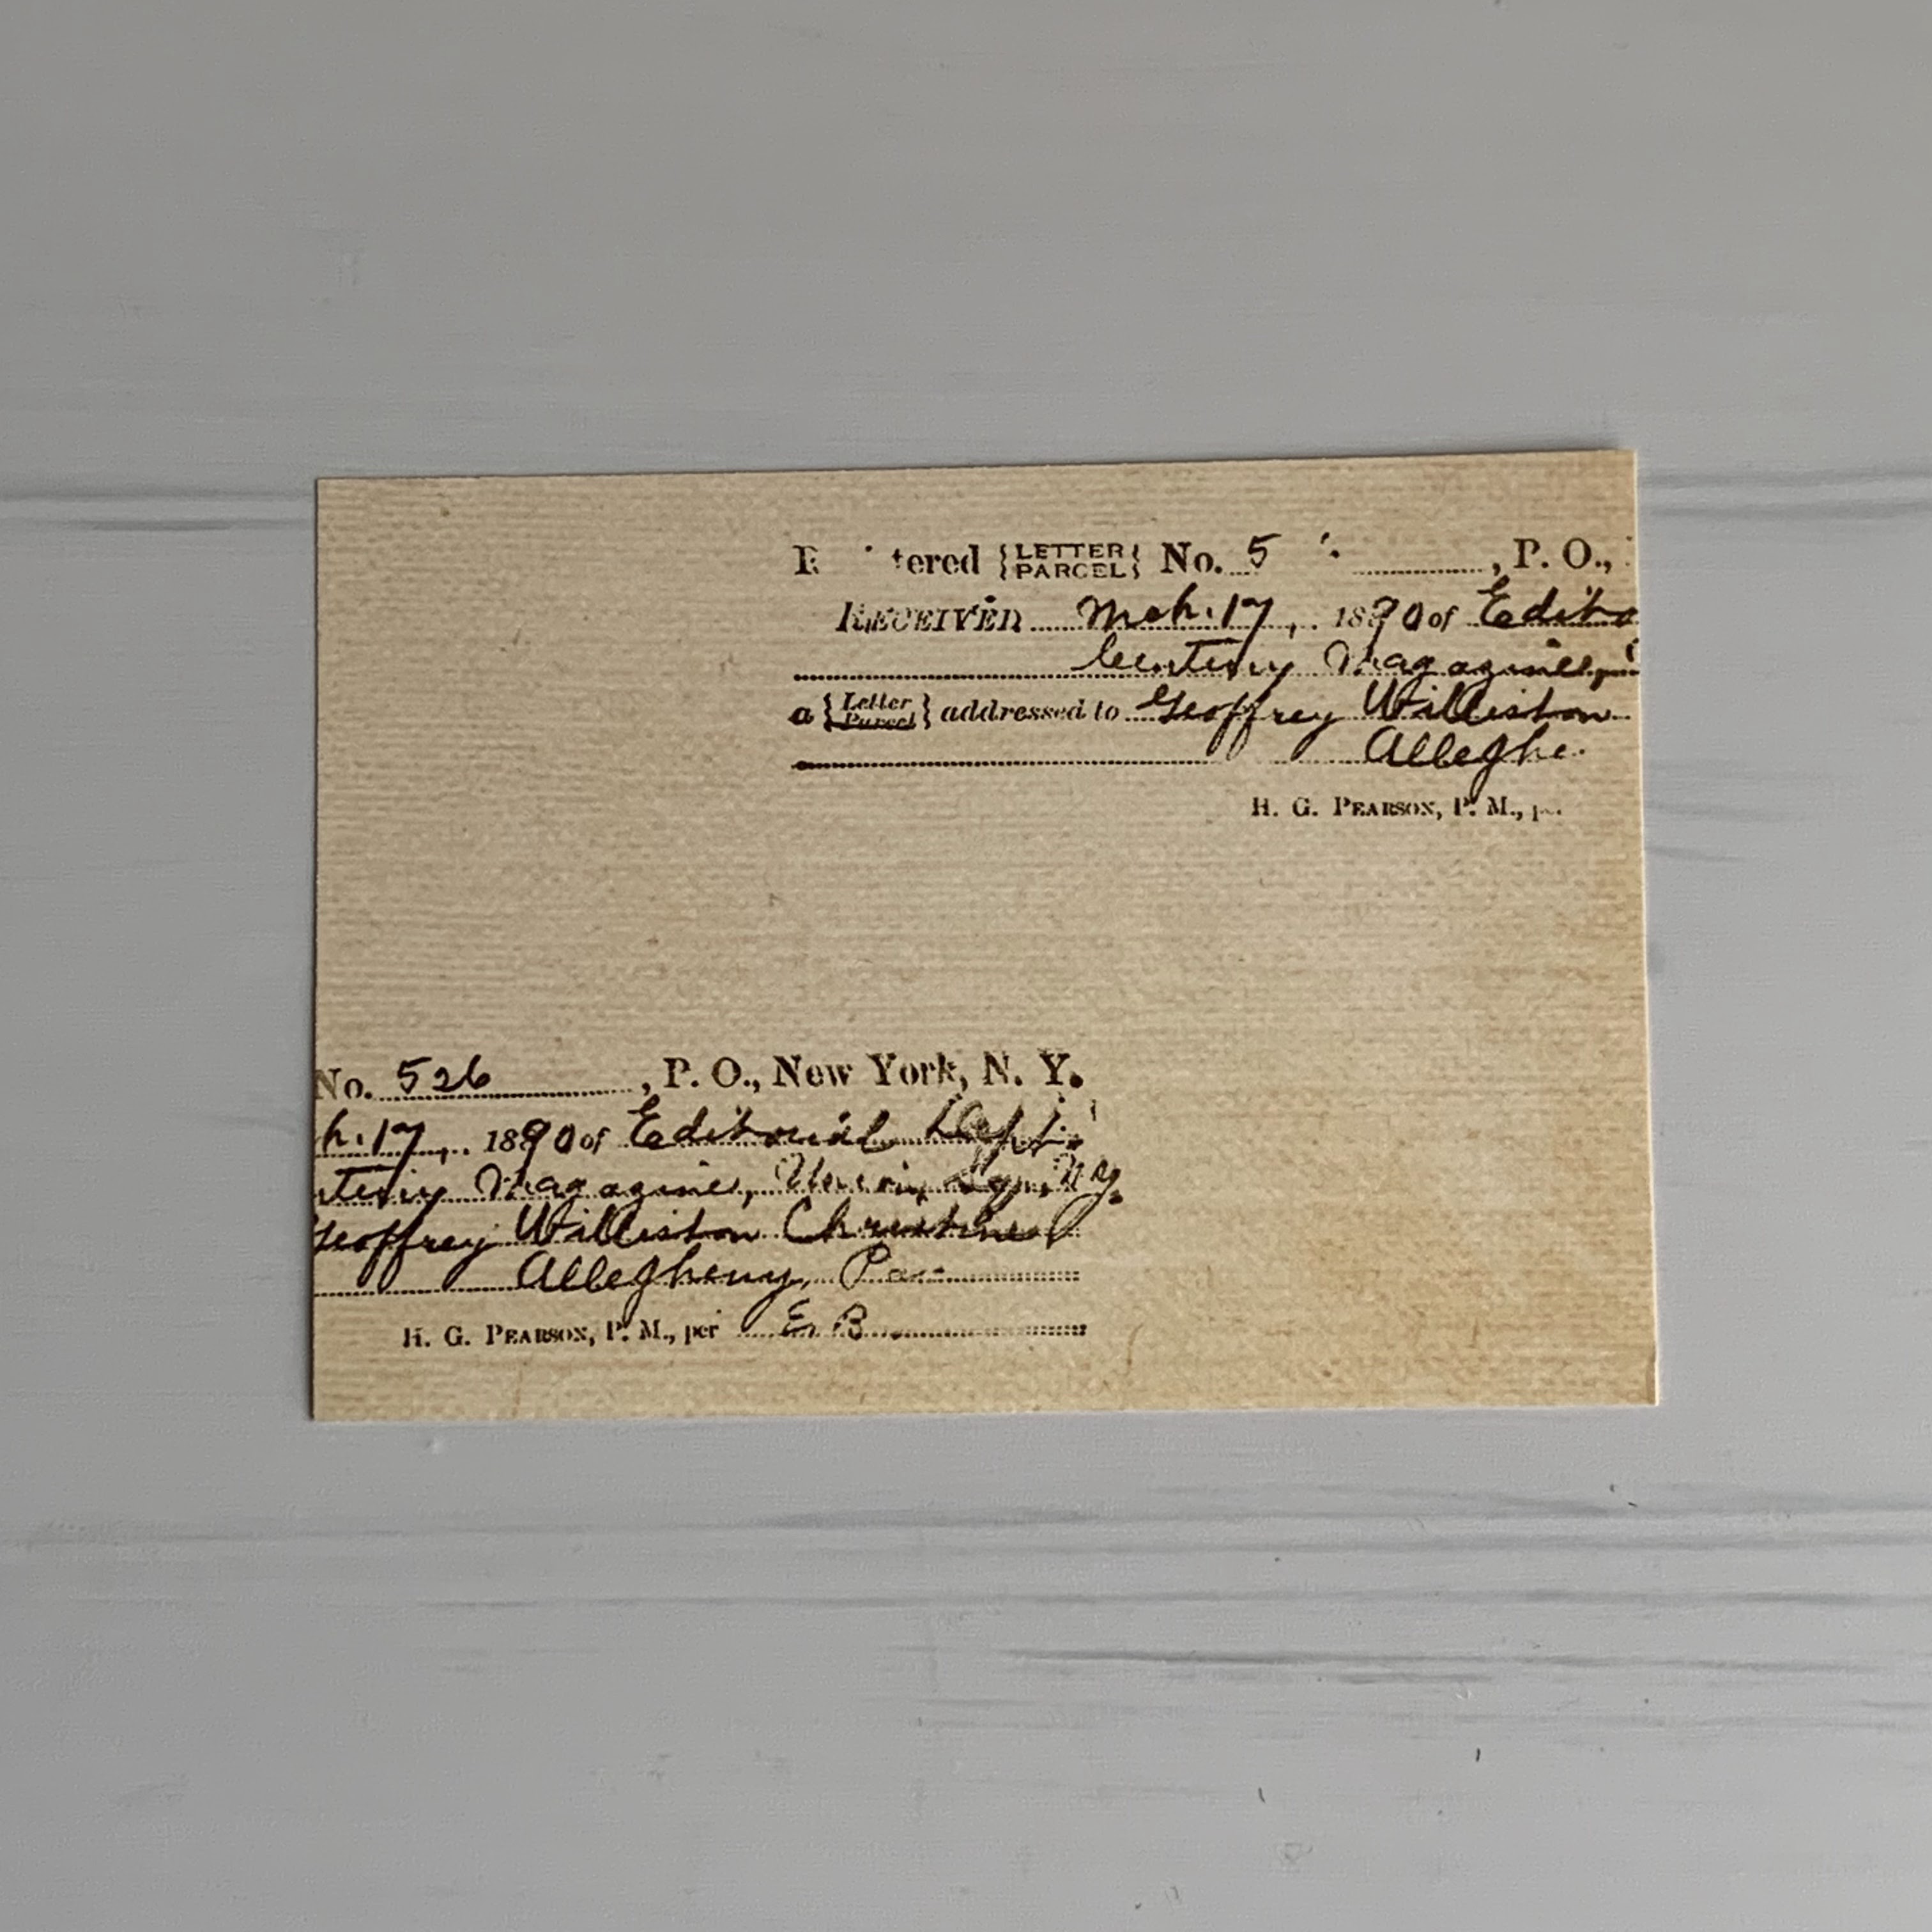 tered {LETTER PARCEL} No. 5 , P. O.,
RECEIVED Mch. 17, 1890 of Edito
Century Magazine,
a {Letter Parcel} addressed to Geoffrey Williston
Alleghe
H. G. PEARSON, P. M., p
No. 526 , P. O., New York, N. Y.
h. 17, 1890 of Editorial Dept.
ntury Magazine, Union Sq., N.Y.
Geoffrey Williston Christine
Allegheny, Pa.
H. G. PEARSON, P. M., per E. B.